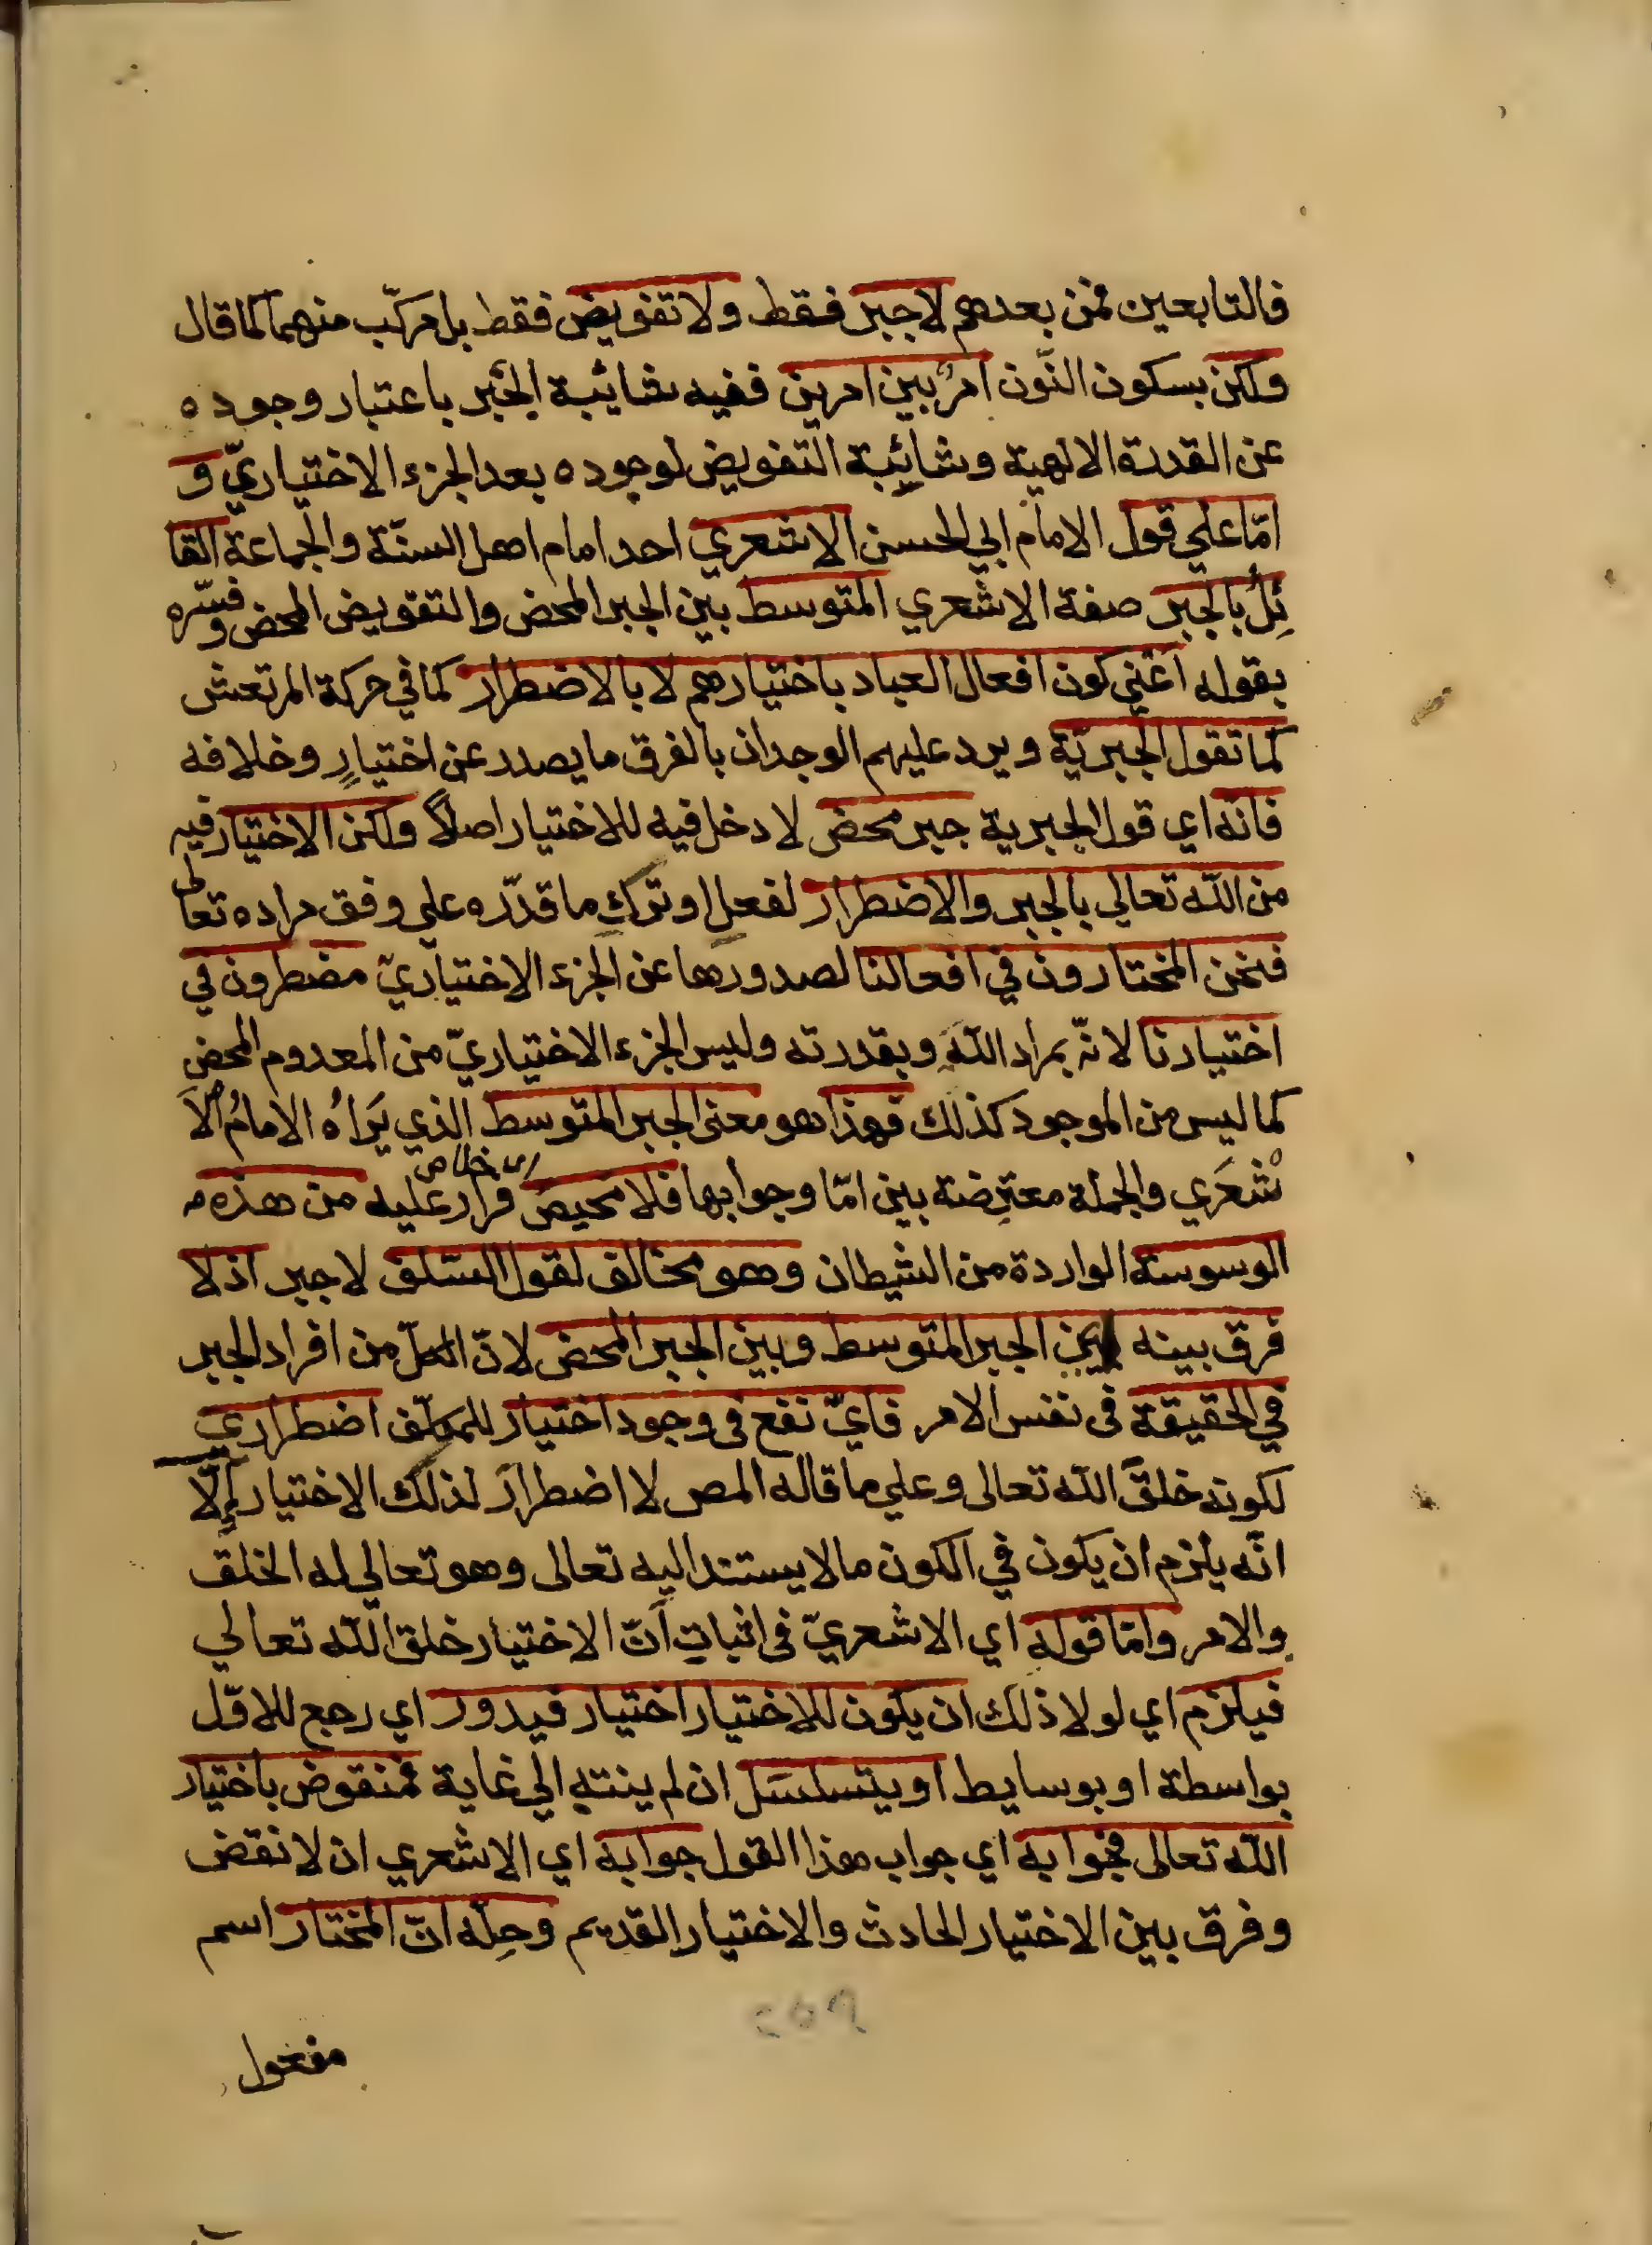 فالتابعين فمن بعدهم لا جبر فقط ولا تفويض فقط بل مركّب منهما كما قال
ولكن بسكون النّون امرٌ بين امرين ففيه شائبة الجبر باعتبار وجوده
عن القدرة الالهية وشائبة التفويض لوجوده بعد الجزء الاختياريّ و
امّا علي قول الامام ابي الحسن الاشعري احد امام اهل السنّة والجماعة القا
ئل بالجبر صفة الاشعري المتوسط بين الجبر المحض والتفويض المحض وفسّره
بقوله اعني كون افعال العباد باختيارهم لا بالاضطرار كما في حركة المرتعش
كما تقول الجبريّة ويرد عليهم الوجدان بالفرق ما يصدر عن اختيارٍ وخلافه
فانّه اي قول الجبرية جبر محض لا دخل فيه للاختيار اصلاً ولكن الاختيار فيه
من اللّه تعالي بالجبر والاضطرار لفعلٍ او تركِ ما قدّره علي وفق مراده تعالى
فنحن المختارون في افعالنا لصدورها عن الجزء الاختياريّ مضطرون في
اختيارنا لانّه بمراد اللّه وبقدرته وليس الجزء الاختياريّ من المعدوم المحض
كما ليس من الموجود كذلك فهذا هو معنى الجبر المتوسط الذي يَراهُ الامامُ الاَ
شْعَري والجملة معترِضة بين امّا وجوابها فلا محيص اي خلاص فرار عليه من هذه
الوسوسة الواردة من الشيطان وهو مخالف لقول السّلف لا جبر اذ لا
فرق بينه بين الجبر المتوسط وبين الجبر المحض لانّ الكلّ من افراد الجبر
في الحقيقة في نفس الامر فايّ نفع في وجود اختيار للمكلّف اضطراري
لكونه خلقَ اللّه تعالى وعلي ما قاله المص لا اضطرارَ لذلك الاختيار إلّا
انّه يلزم ان يكون في الكون ما لا يستند اليه تعالى وهو تعالي له الخلق
والامر وامّا قوله اي الاشعريّ في اثباتِ اَنّ الاختيار خلق اللّه تعالي
فيلزم اي لولا ذلك ان يكون للاختيار اختيار فيدور اي رجع للاوّل
بواسطة او بوسايط او يتسلسَل ان لم ينته الي غاية فمنقوض باختيار
اللّه تعالى فجوابه اي جواب هذا القول جوابه اي الاشعري ان لا نقض
وفرق بين الاختيار الحادث والاختيار القديم وحِلّه انّ المختار اسم
مفعول